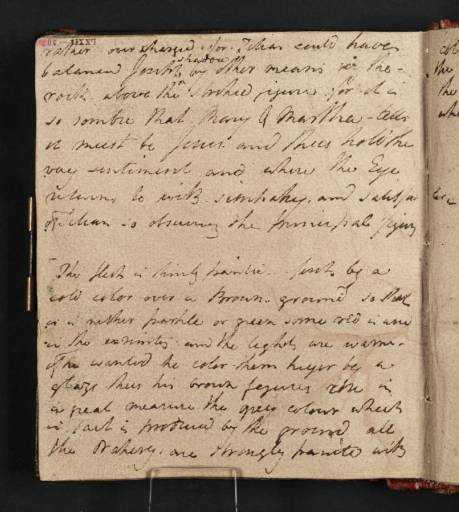 rather overcharged for Titian could have
balanced Joseph by shadow other means in the
rock above the Naked figure for it is
so sombre that Mary & Martha tells
it must be Jesus and thus hold the
very sentiment and where the Eye
returns to with simpathy and satisfac
Titian is obscuring the principal figure
The flesh is thinly painted first by a
cold color over a Brown ground so that
it is neither purple or green some red is used
in the extremities and the lights are warm
If he wanted the color them by a
glaze thus his brown figures in
a great measure the grey colour which
in fact is produced by the ground all
the Drapery are strongly painted with